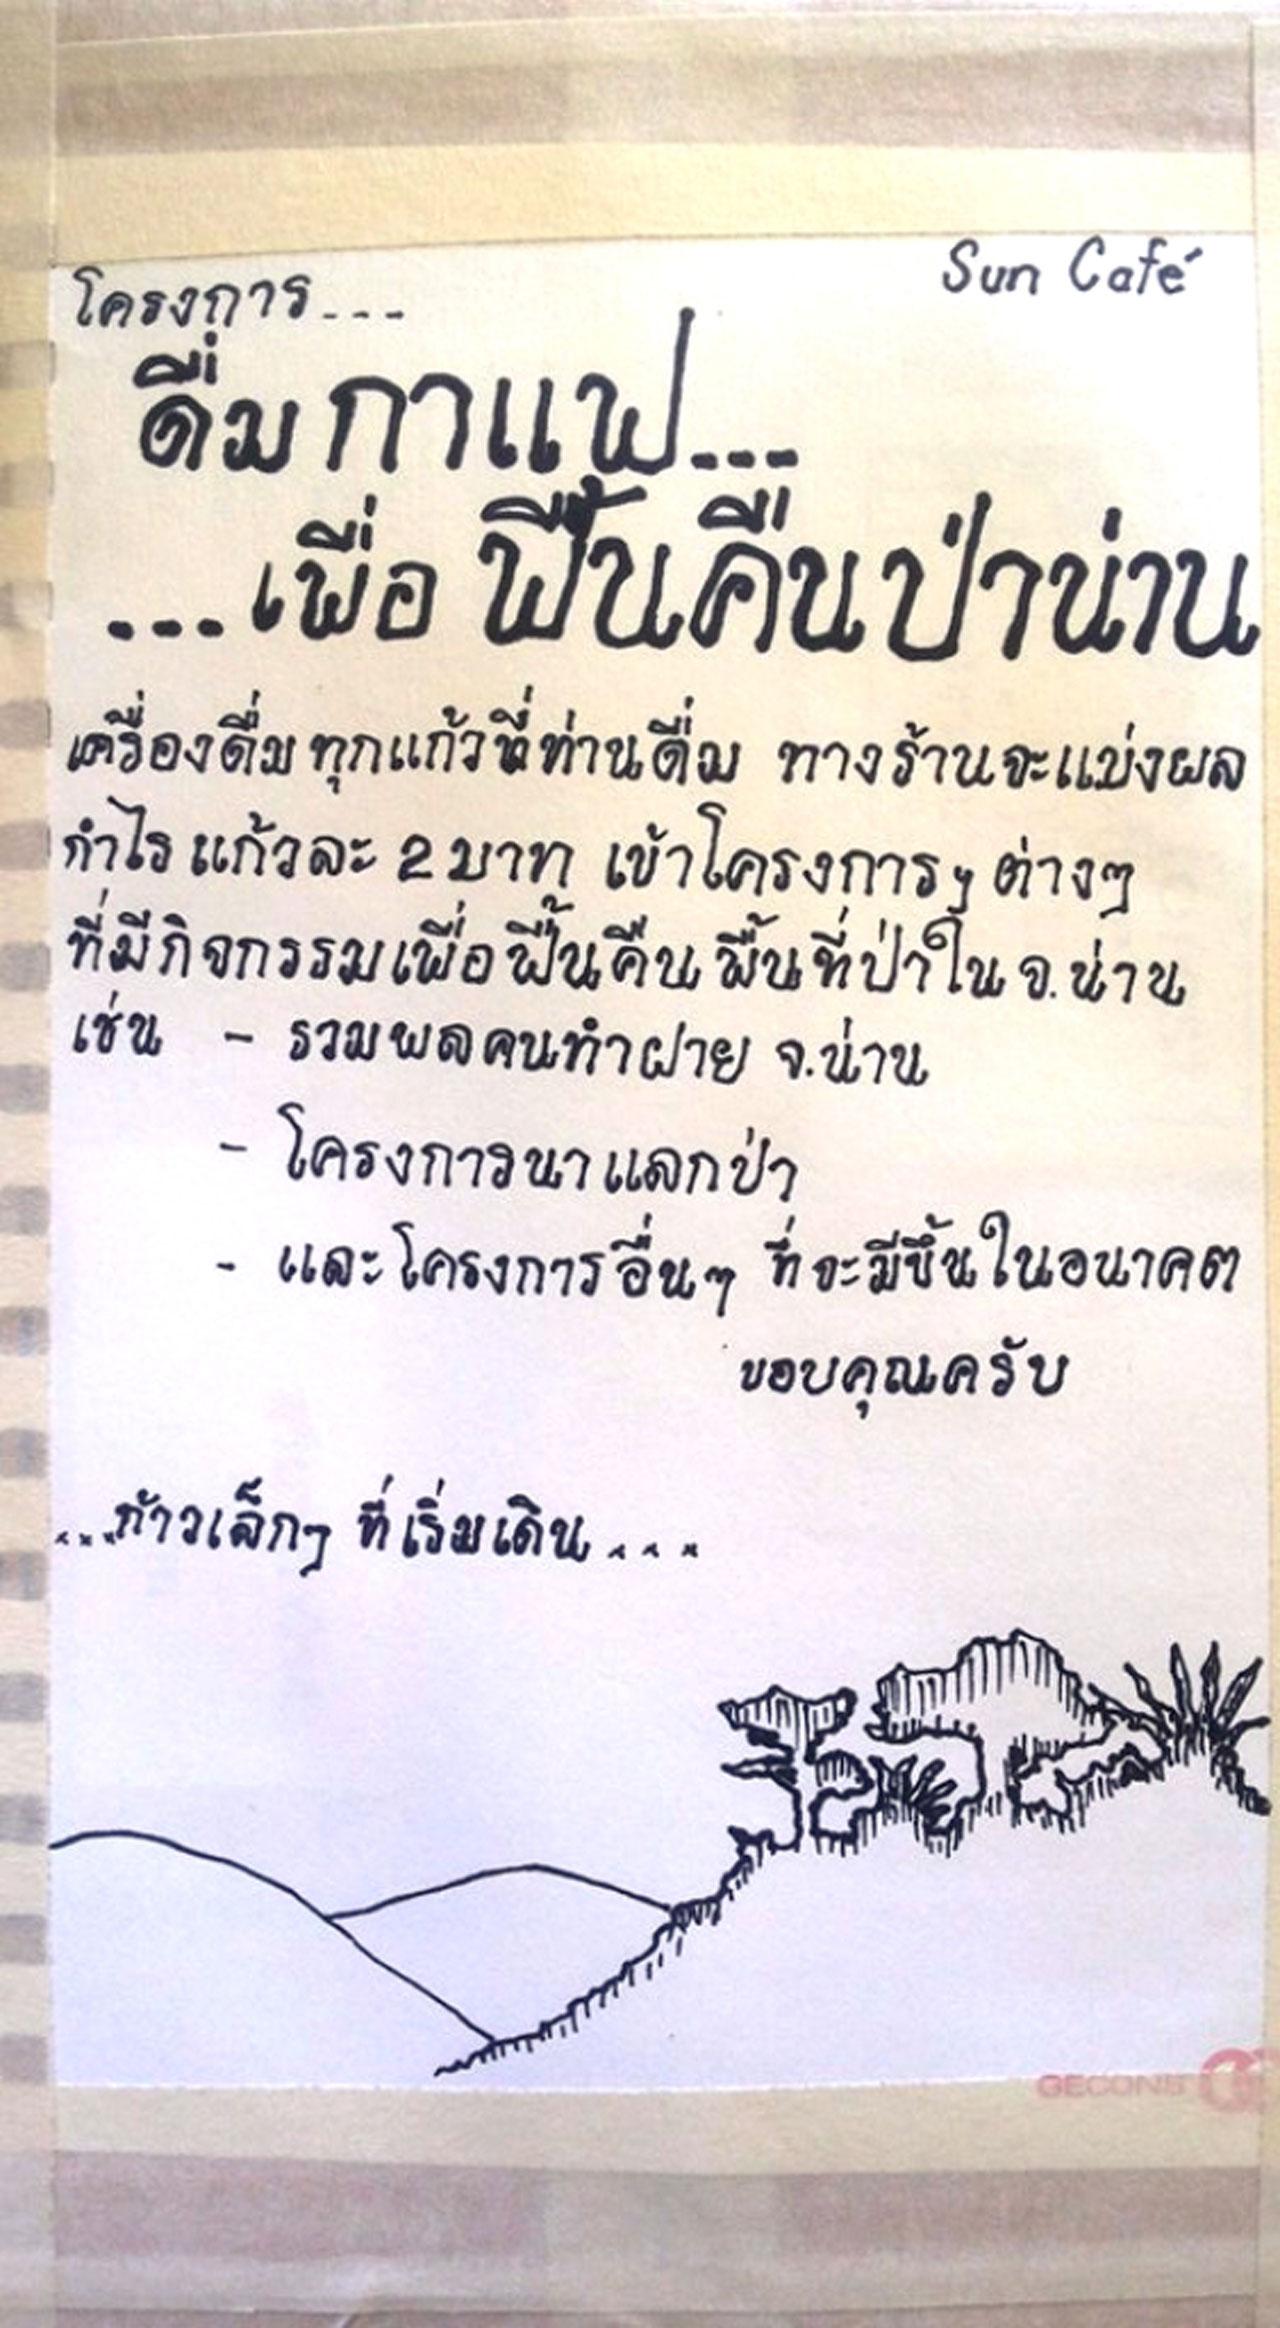 Sun Café
โครงการ...
ดื่มกาแฟ...
...เพื่อ ฟื้นคืนป่าน่าน
เครื่องดื่มทุกแก้วที่ท่านดื่ม ทางร้านจะแบ่งผล
กำไร แก้วละ 2 บาท เข้าโครงการฯ ต่างๆ
ที่มีกิจกรรมเพื่อฟื้นคืนพื้นที่ป่าใน จ.น่าน
เช่น - รวมพลคนทำฝาย จ.น่าน
- โครงการนาแลกป่า
- และโครงการอื่นๆ ที่จะมีขึ้นในอนาคต
ขอบคุณครับ
...ก้าวเล็กๆ ที่เริ่มเดิน....
GECONS